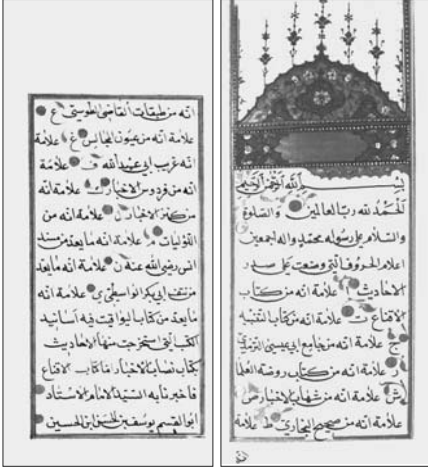 بسم الله الرحمن الرحيم
الحمد لله رب العالمين والصلوة
والسلام على رسوله محمد واله اجمعين
اعلام الحروف التي وضعت على صدر
الاحاديث ا علامة انه من كتاب
الاقناع ت علامة انه من كتاب التنبيه
ج علامة انه من جامع ابي عيسى الترمذي
ر علامة انه من كتاب روضة العلما
ش علامة انه من شهاب الاخبار ص
علامة انه من صحيح البخاري ط علامة
انه من طبقات القاضي الطوسي ع
علامة انه من عيون المجالس غ علامة
انه غريب ابي عبيد الله ف علامة
انه من فردوس الاخبار ك علامة انه
من كنز الاخبار ل علامة انه من
اللؤليات م علامة انه ما يعد من مسند
انس رضي الله عنه ن علامة انه ما يعد
من نتف ابي بكر الواسطي ي علامة انه
ما يعد من كتاب اليواقيت فيه اسانيد
الكتب التي استخرجت منها الاحاديث
كتاب فضايل الاخبار اما كتاب الاقناع
فاخبرنا به السيد الامام الاستاد
ابو القسم يوسف بن الحسين